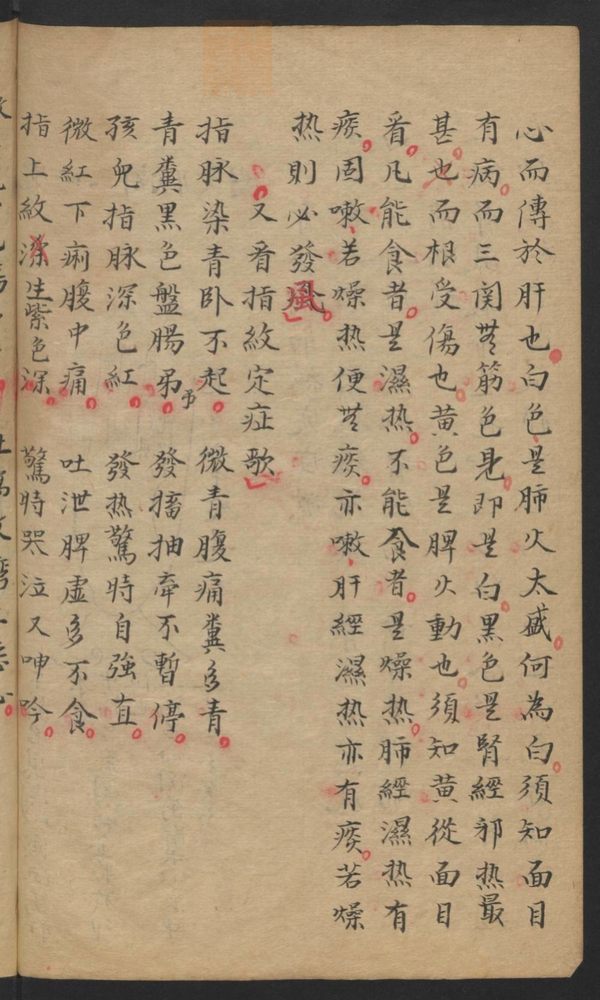 心而傳於肝也白色是肺火太盛何為白須知面目
有病而三関其筋色見即是白黑色是腎經邪热最
甚也而根受傷也黄色是脾火動也須知黄從面目
看凡能食者是濕热不能食者是燥热肺經濕热有
痰固嗽若燥热便其痰亦嗽肝經濕热亦有痰若燥
热則必發風
又看指紋定症歌
指脉染青卧不起 微青腹痛糞多青
青糞黑色盤腸吊 發搐抽牽不暫停
孩兒指脉深色紅 發热驚時自強直
微紅下痢腹中痛 吐泄脾虛多不食
指上紋深生紫色深 驚時哭泣又呻吟